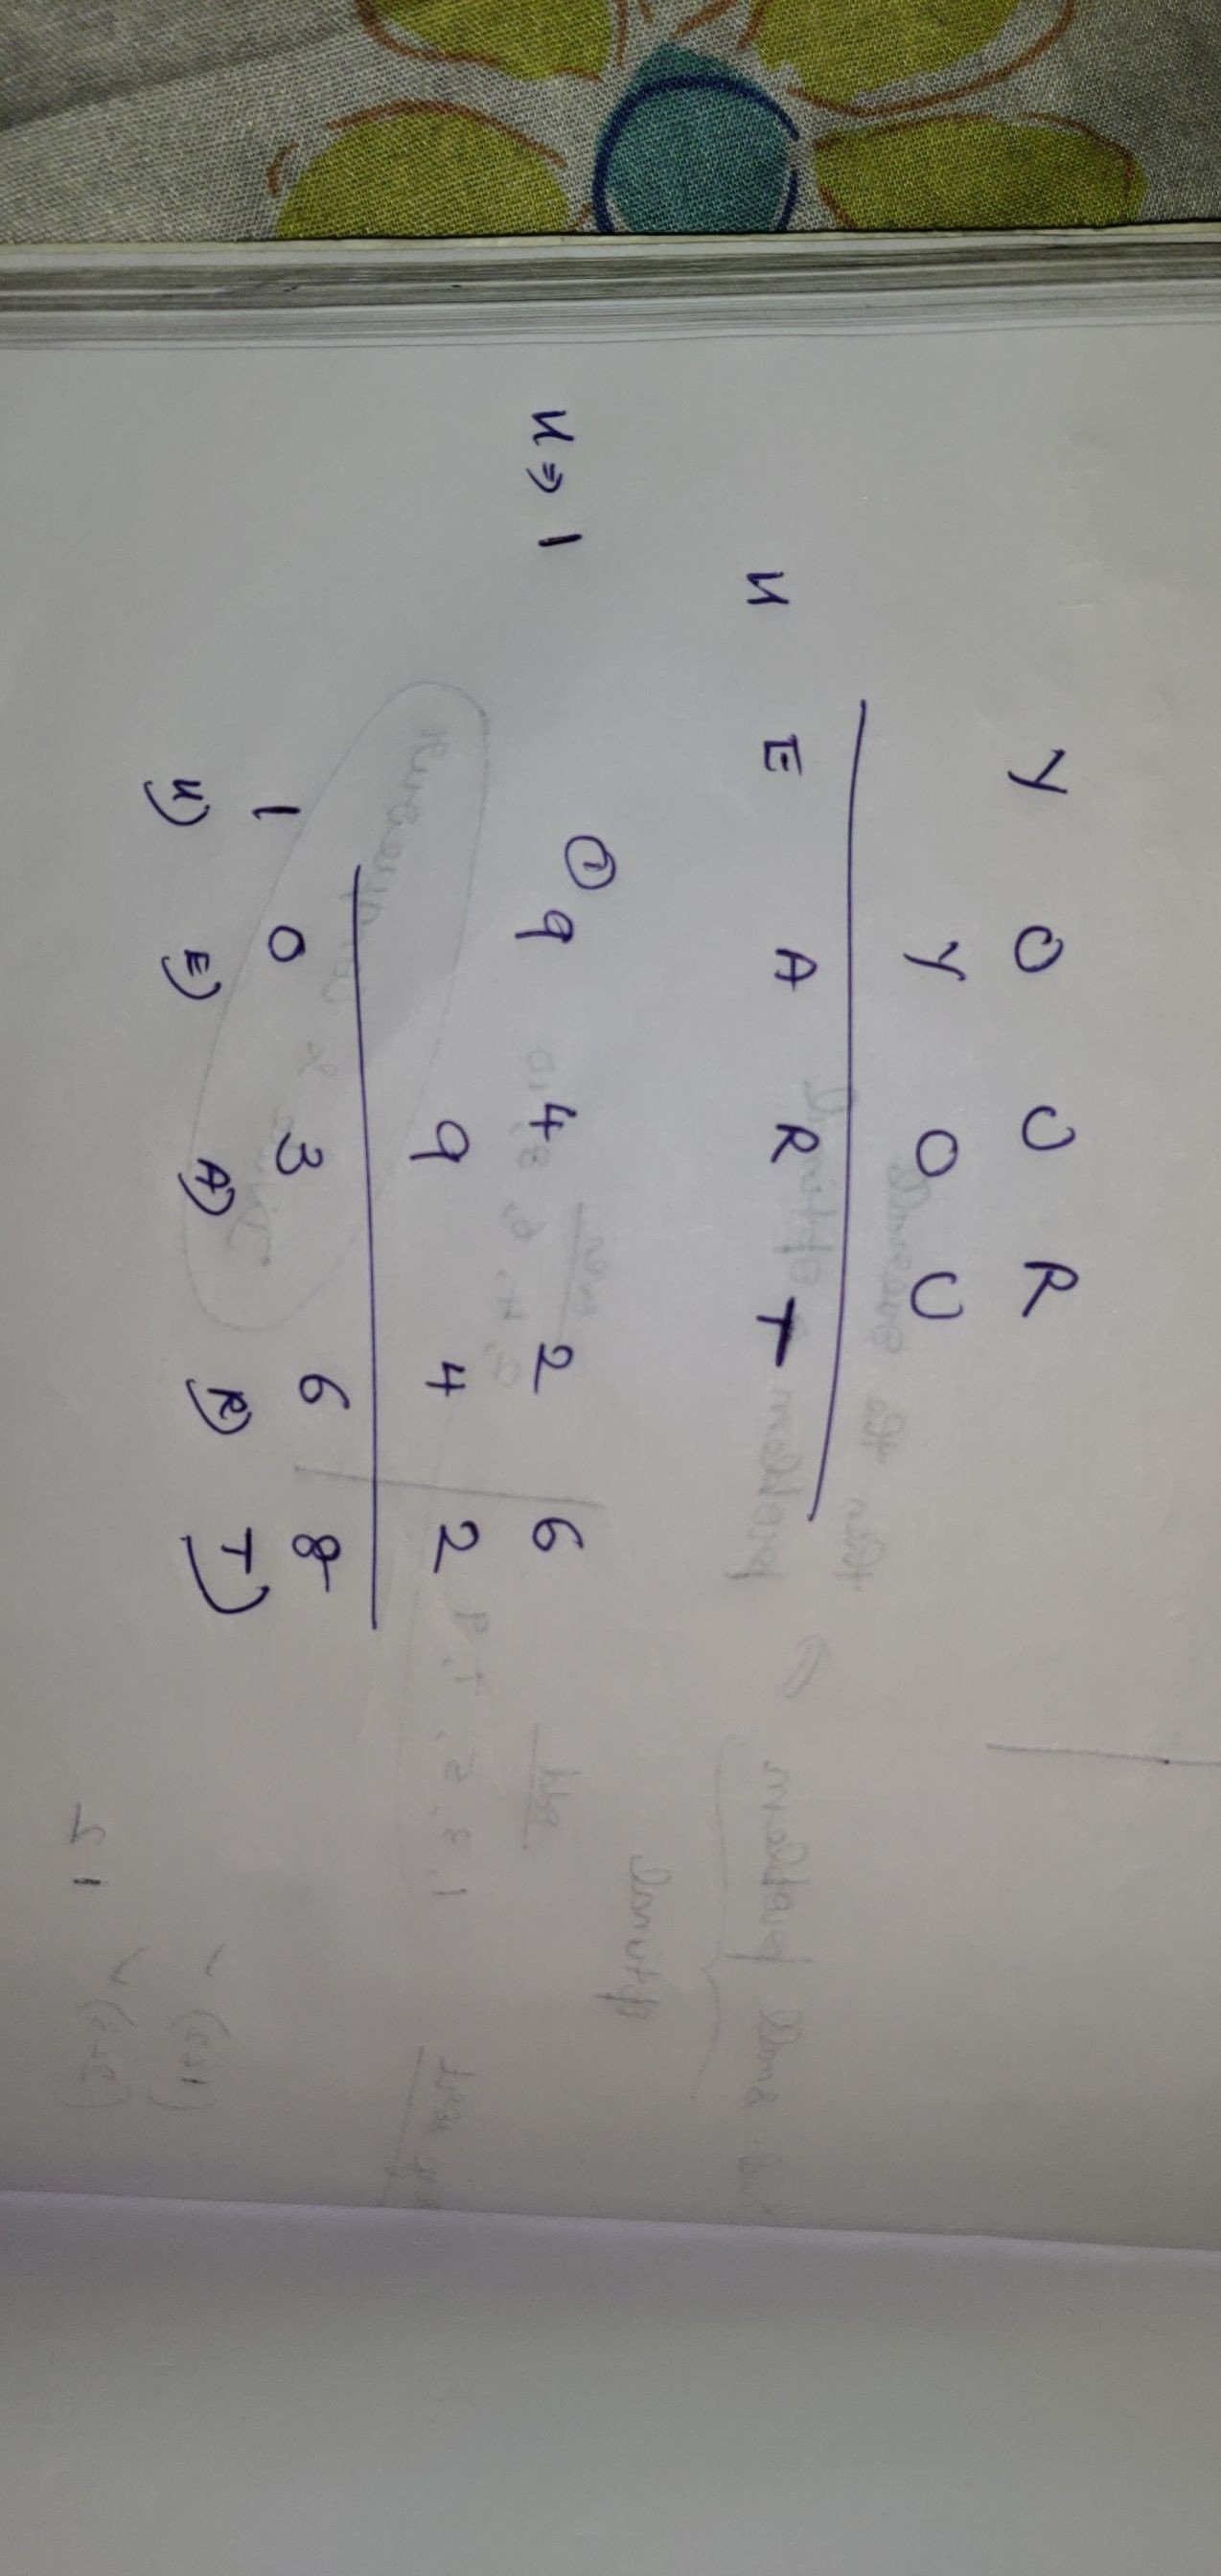 Y O U R
Y O U
H E A R T
H ⇒ 1
① 9 4 2 6
9 4 2
1 0 3 6 8
H) E) A) R) T)